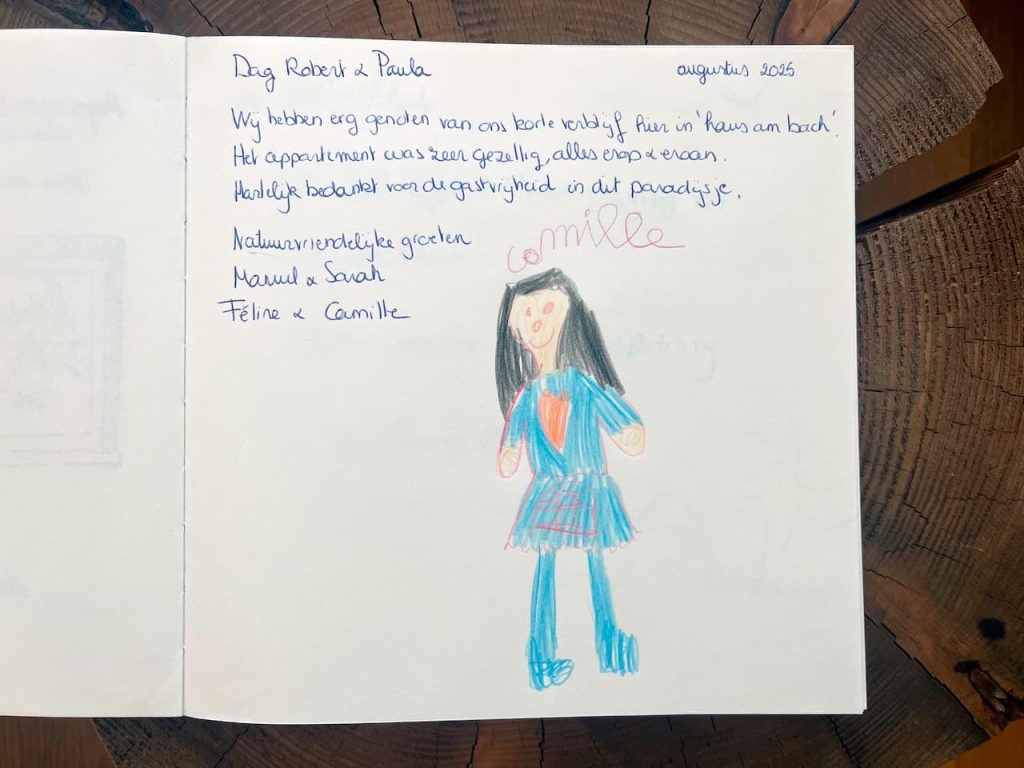 Dag Robert & Paula
augustus 2025
Wij hebben erg genoten van ons korte verblijf hier in 'haus am bach'.
Het appartement was zeer gezellig, alles erop & eraan.
Hartelijk bedankt voor de gastvrijheid in dit paradijsje.
Natuurvriendelijke groeten
Manuel & Sarah
Féline & Camille
camille